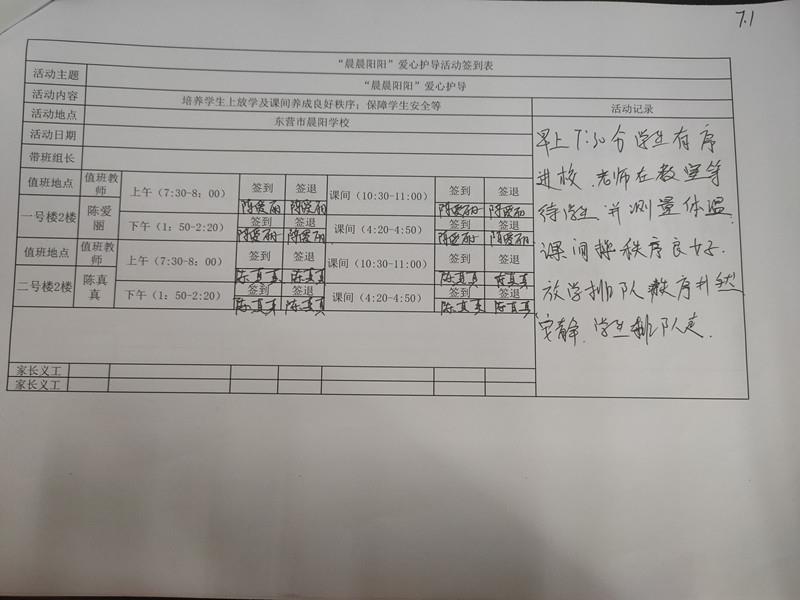 7.1
“晨晨阳阳”爱心护导活动签到表
活动主题 “晨晨阳阳”爱心护导
活动内容 培养学生上放学及课间养成良好秩序；保障学生安全等 活动记录
活动地点 东营市晨阳学校
活动日期
带班组长
值班地点 值班教师 上午（7:30-8：00） 签到 签退 课间（10:30-11:00） 签到 签退
陈爱丽 陈爱丽 陈爱丽 陈爱丽
一号楼2楼 陈爱丽 下午（1：50-2:20） 签到 签退 课间（4:20-4:50） 签到 签退
陈爱丽 陈爱丽 陈爱丽 陈爱丽
值班地点 值班教师 上午（7:30-8：00） 签到 签退 课间（10:30-11:00） 签到 签退
陈真真 陈真真 陈真真 陈真真
二号楼2楼 陈真真 下午（1：50-2:20） 签到 签退 课间（4:20-4:50） 签到 签退
陈真真 陈真真 陈真真 陈真真
家长义工
家长义工
早上7:30分学生有序
进校.老师在教室等
待学生并测量体温.
课间操秩序良好.
放学排队秩序井然
安静.学生排队走.